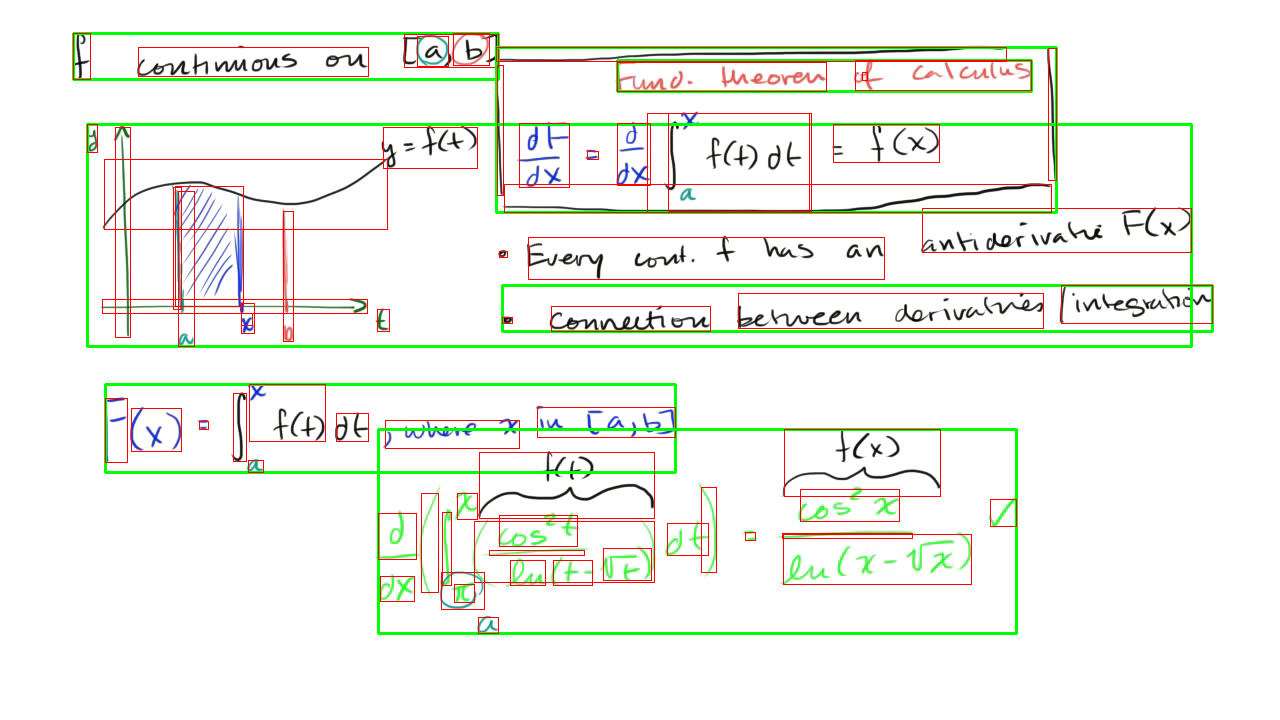 f continuous on [a, b]
Fund. theorem of calculus
dF/dx = d/dx ∫_a^x f(t) dt = f(x)
y
y = f(t)
a x b t
• Every cont. f has an antiderivative F(x)
• Connection between derivatives / integration
F(x) = ∫_a^x f(t) dt, where x in [a, b]
f(t) f(x)
d/dx (∫_π^x (cos² t / ln(t-√t)) dt) = cos² x / ln(x-√x) ✓
a